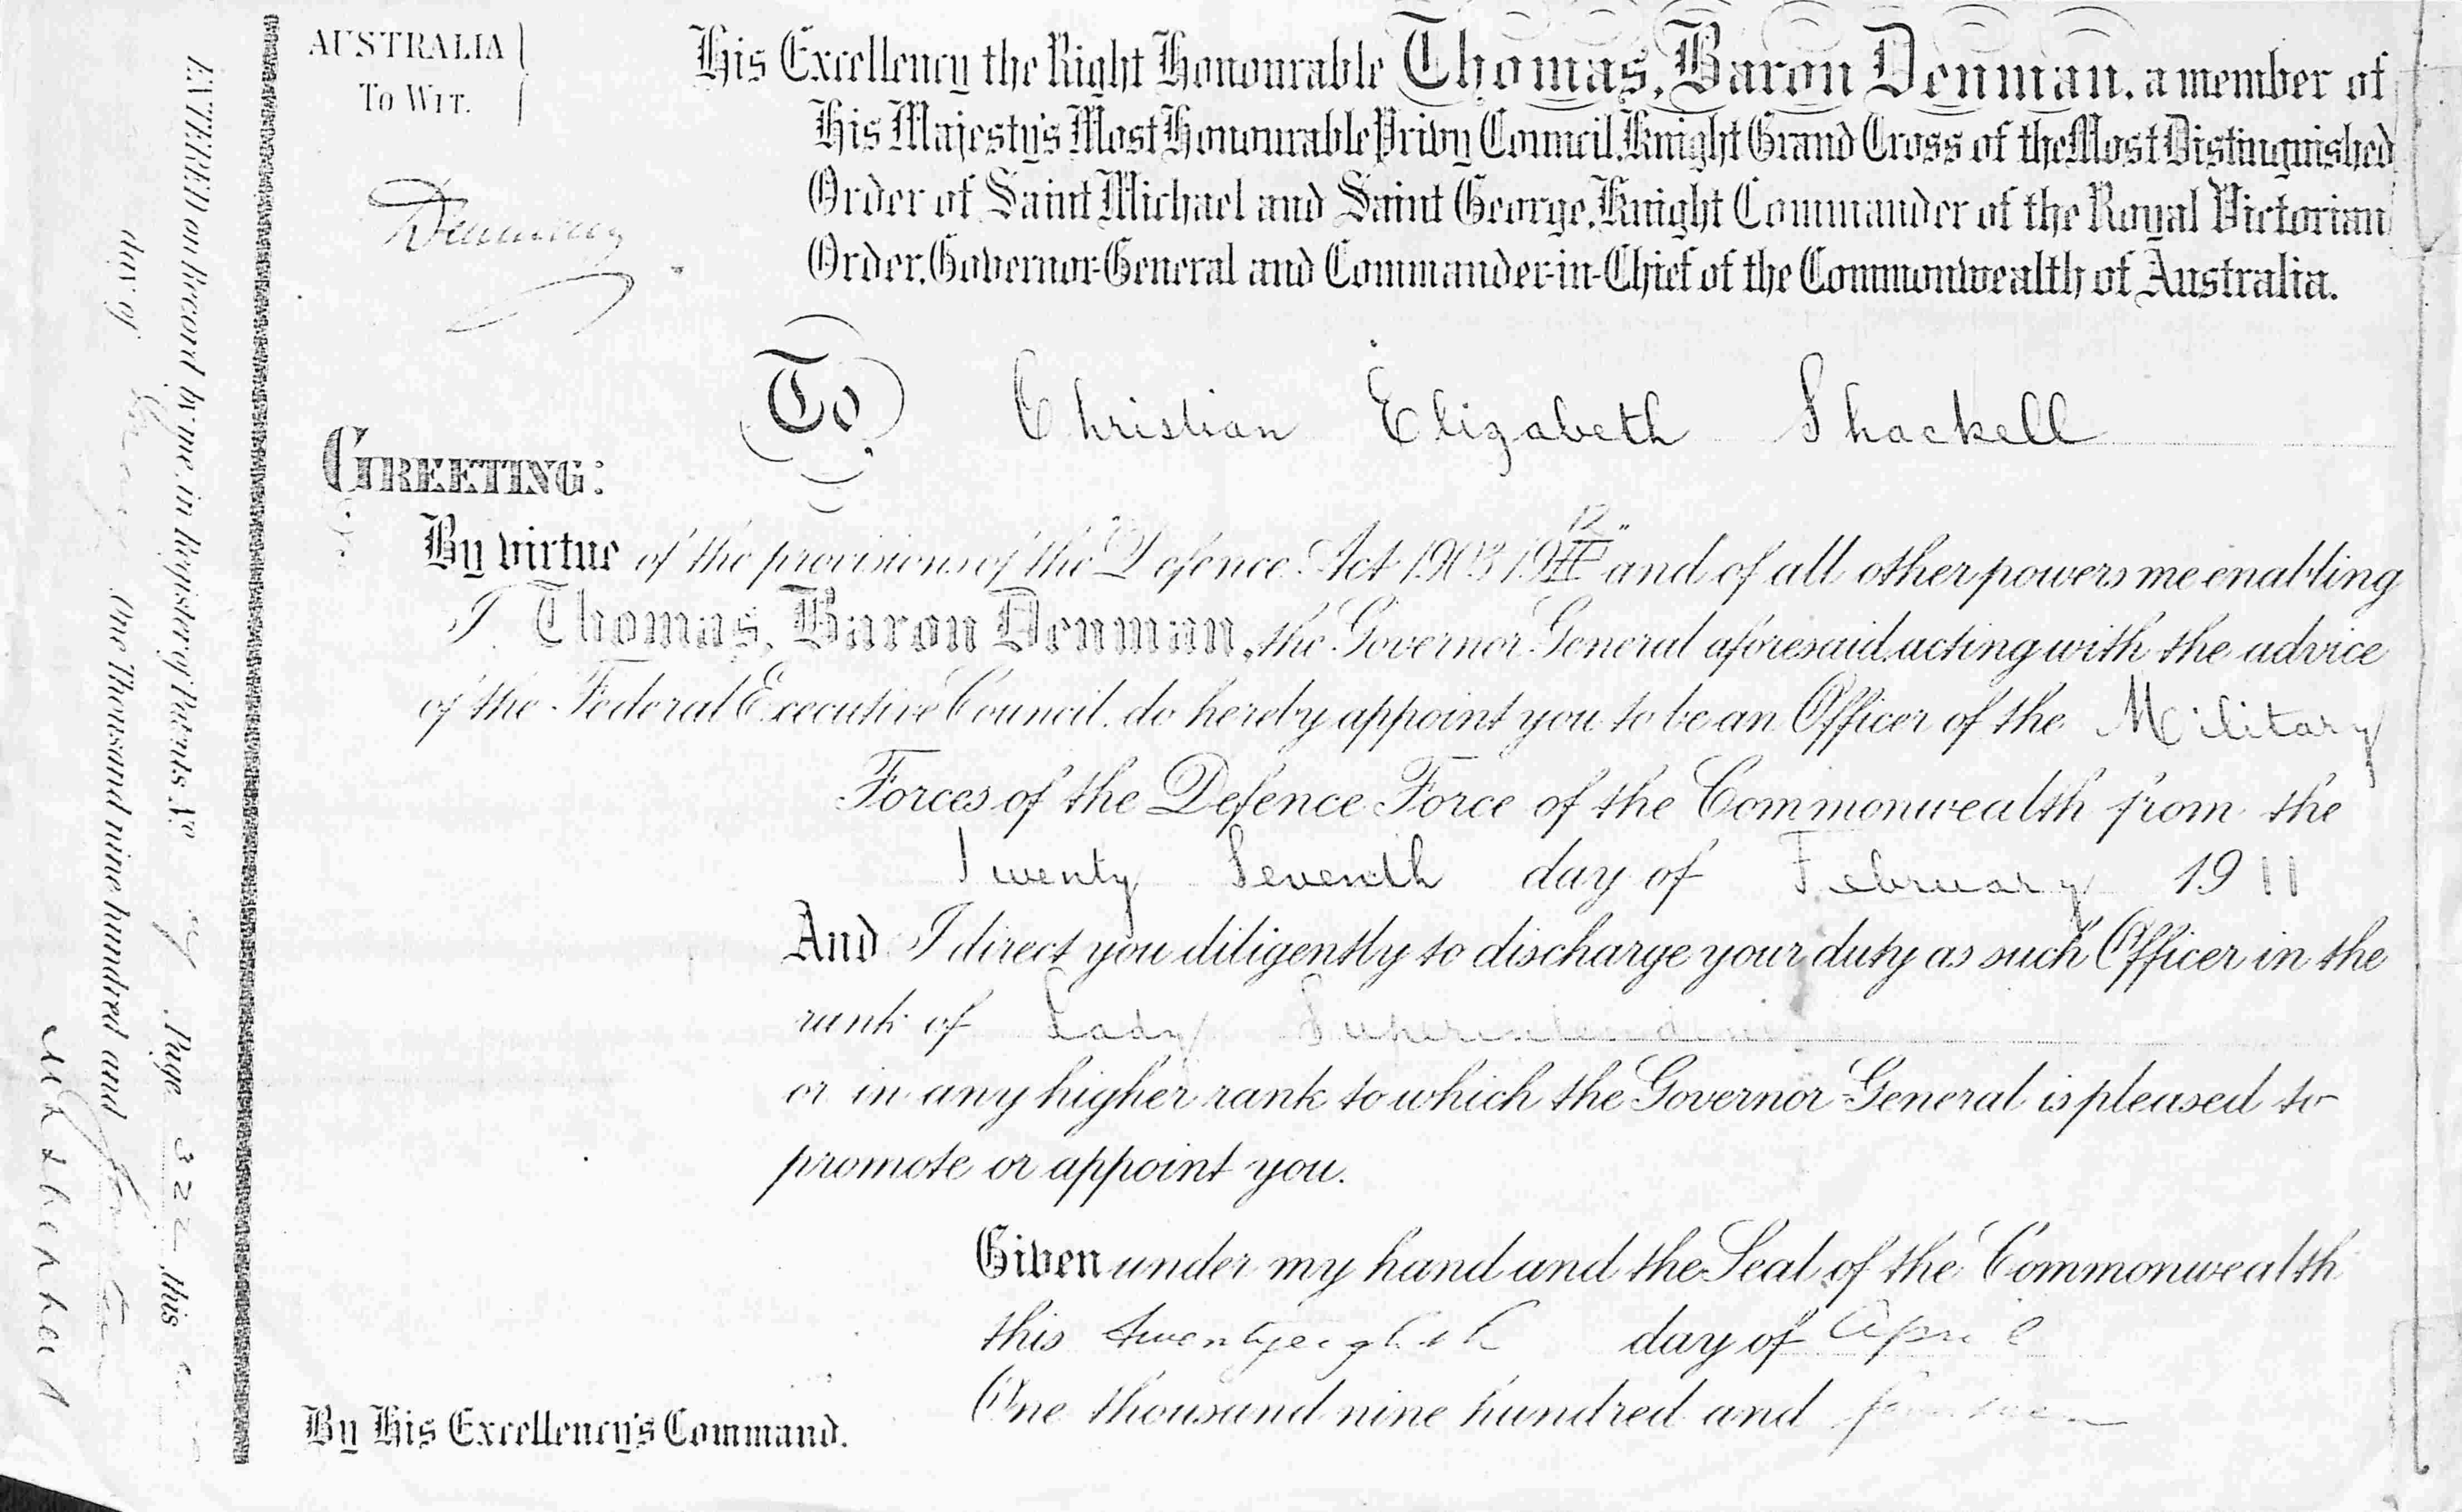 AUSTRALIA
TO WIT.
Denman
His Excellency the Right Honourable Thomas, Baron Denman, a member of
His Majesty's Most Honourable Privy Council, Knight Grand Cross of the Most Distinguished
Order of Saint Michael and Saint George, Knight Commander of the Royal Victorian
Order, Governor-General and Commander-in-Chief of the Commonwealth of Australia.
To Christian Elizabeth Shackell
GREETING:
By virtue of the provisions of the "Defence Act 1903-1912" and of all other powers me enabling
I, Thomas, Baron Denman, the Governor General aforesaid, acting with the advice
of the Federal Executive Council, do hereby appoint you to be an Officer of the Military
Forces of the Defence Force of the Commonwealth from the
Twenty Seventh day of February 1911
And I direct you diligently to discharge your duty as such Officer in the
rank of Lady Superintendent
or in any higher rank to which the Governor-General is pleased to
promote or appoint you.
Given under my hand and the Seal of the Commonwealth
this twentyeighth day of April
One thousand nine hundred and fourteen
By His Excellency's Command.
ENTERED on Record by me, in Register of Patents No. Page 322 this
day of One Thousand nine hundred and fourteen